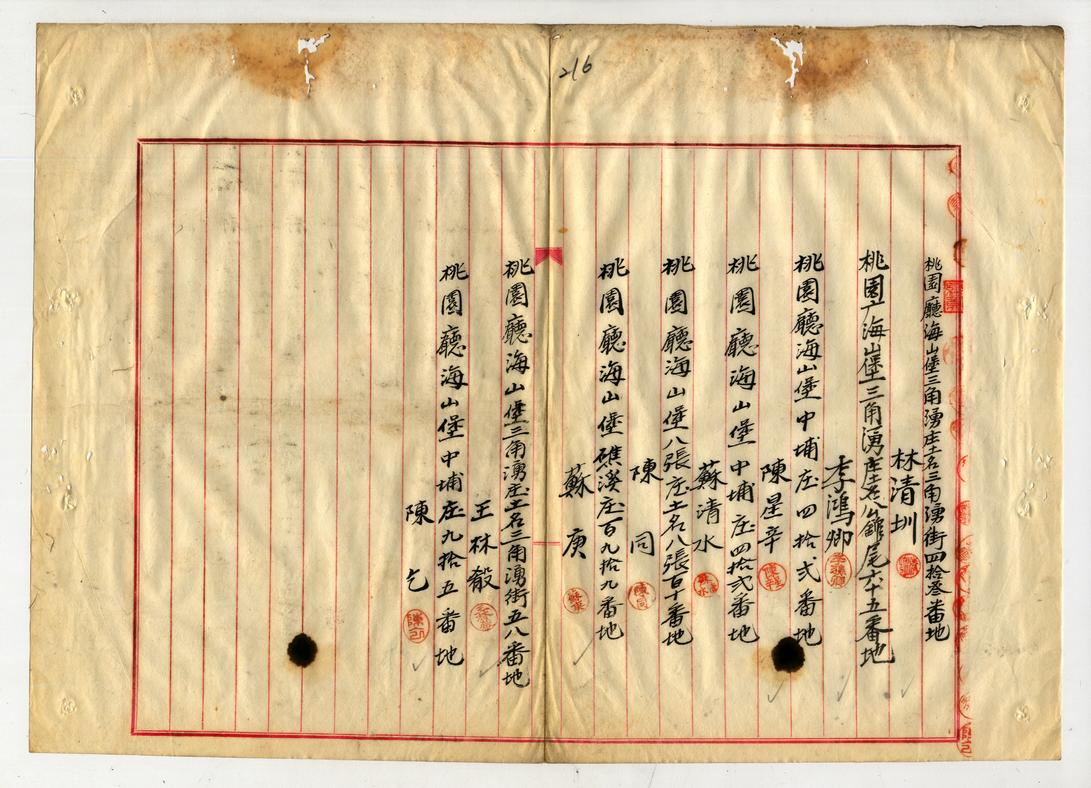 216
桃園廳海山堡三角湧庄土名三角湧街四拾叁番地
林清圳
桃園廳海山堡三角湧庄土名公館尾六十五番地
李鴻卿
桃園廳海山堡中埔庄四拾弍番地
陳星辛
桃園廳海山堡中埔庄四拾弍番地
蘇清水
桃園廳海山堡八張庄土名八張百十番地
陳同
桃園廳海山堡礁溪庄百九拾九番地
蘇庚
桃園廳海山堡三角湧庄土名三角湧街五八番地
王林
桃園廳海山堡中埔庄九拾五番地
陳乞